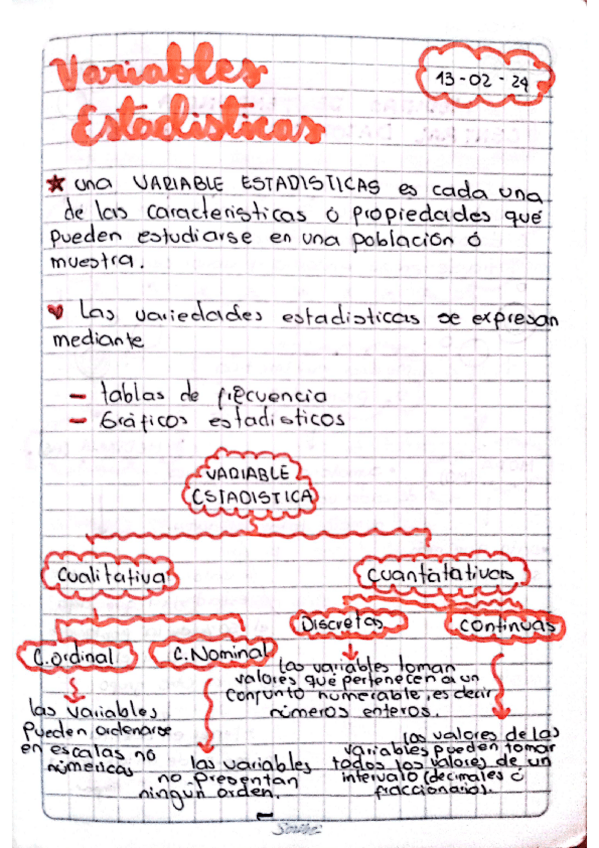 Variables
Estadisticas
13-02-24
una VARIABLE ESTADISTICAS es cada una
de las caracteristicas ó propiedades que
pueden estudiarse en una población ó
muestra.
Las variedades estadisticas se expresan
mediante
- tablas de frecuencia
- Gráficos estadisticos
VARIABLE
ESTADISTICA
Cualitativa
Cuantatativas
Discretas
continuas
C. Ordinal
C. Nominal
las variables toman
valores que pertenecen a un
conjunto numerable, es decir
números enteros.
las variables
pueden ordenarse
en escalas no
númericas
las variables
no presentan
ningún orden.
los valores de las
variables pueden tomar
todos los valores de un
intervalo (decimales ó
fraccionario).
Scribe